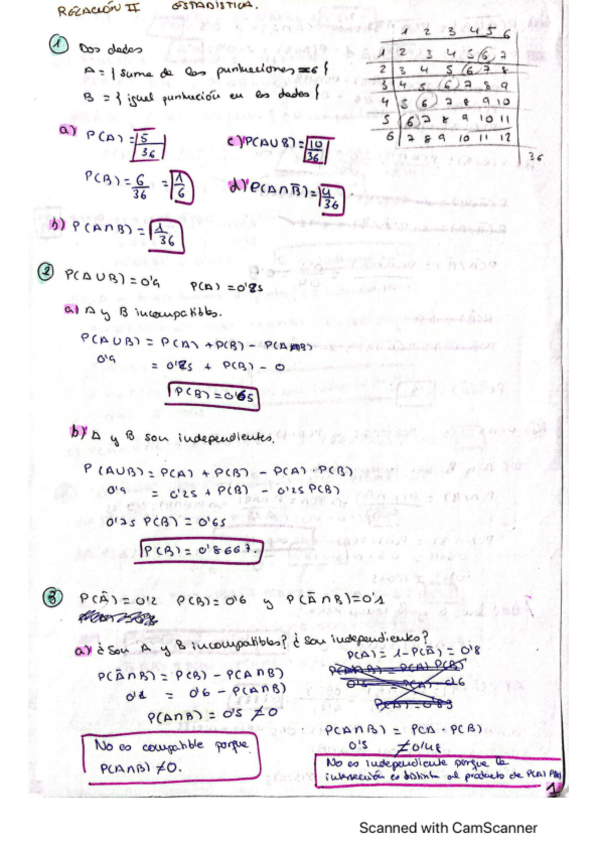 RELACIÓN II ESTADÍSTICA.
1 Dos dados
A = { suma de las puntuaciones = 6 }
B = { igual puntuación en los dados }
1 2 3 4 5 6
1 2 3 4 5 6 7
2 3 4 5 6 7 8
3 4 5 6 7 8 9
4 5 6 7 8 9 10
5 6 7 8 9 10 11
6 7 8 9 10 11 12
36
a) P(A) = 5/36
P(B) = 6/36 = 1/6
b) P(A∩B) = 1/36
c) P(A∪B) = 10/36
d) P(A∩B̄) = 4/36
2 P(A∪B) = 0'9 P(A) = 0'25
a) A y B incompatibles.
P(A∪B) = P(A) + P(B) - P(A∩B)
0'9 = 0'25 + P(B) - 0
P(B) = 0'65
b) A y B son independientes.
P(A∪B) = P(A) + P(B) - P(A)·P(B)
0'9 = 0'25 + P(B) - 0'25 P(B)
0'75 P(B) = 0'65
P(B) = 0'8667.
3 P(Ā) = 0'2 P(B) = 0'6 y P(Ā∩B) = 0'1
a) ¿Son A y B incompatibles? ¿Son independientes?
P(Ā∩B) = P(B) - P(A∩B)
0'1 = 0'6 - P(A∩B)
P(A∩B) = 0'5 ≠ 0
No es compatible porque
P(A∩B) ≠ 0.
P(A) = 1 - P(Ā) = 0'8
P(A∩B) = P(A)·P(B)
0'5 = P(A)·0'6
P(A) = 0'83
P(A∩B) = P(A · P(B)
0'5 ≠ 0'48
No es independiente porque la
intersección es distinta al producto de P(A) P(B)
1
Scanned with CamScanner